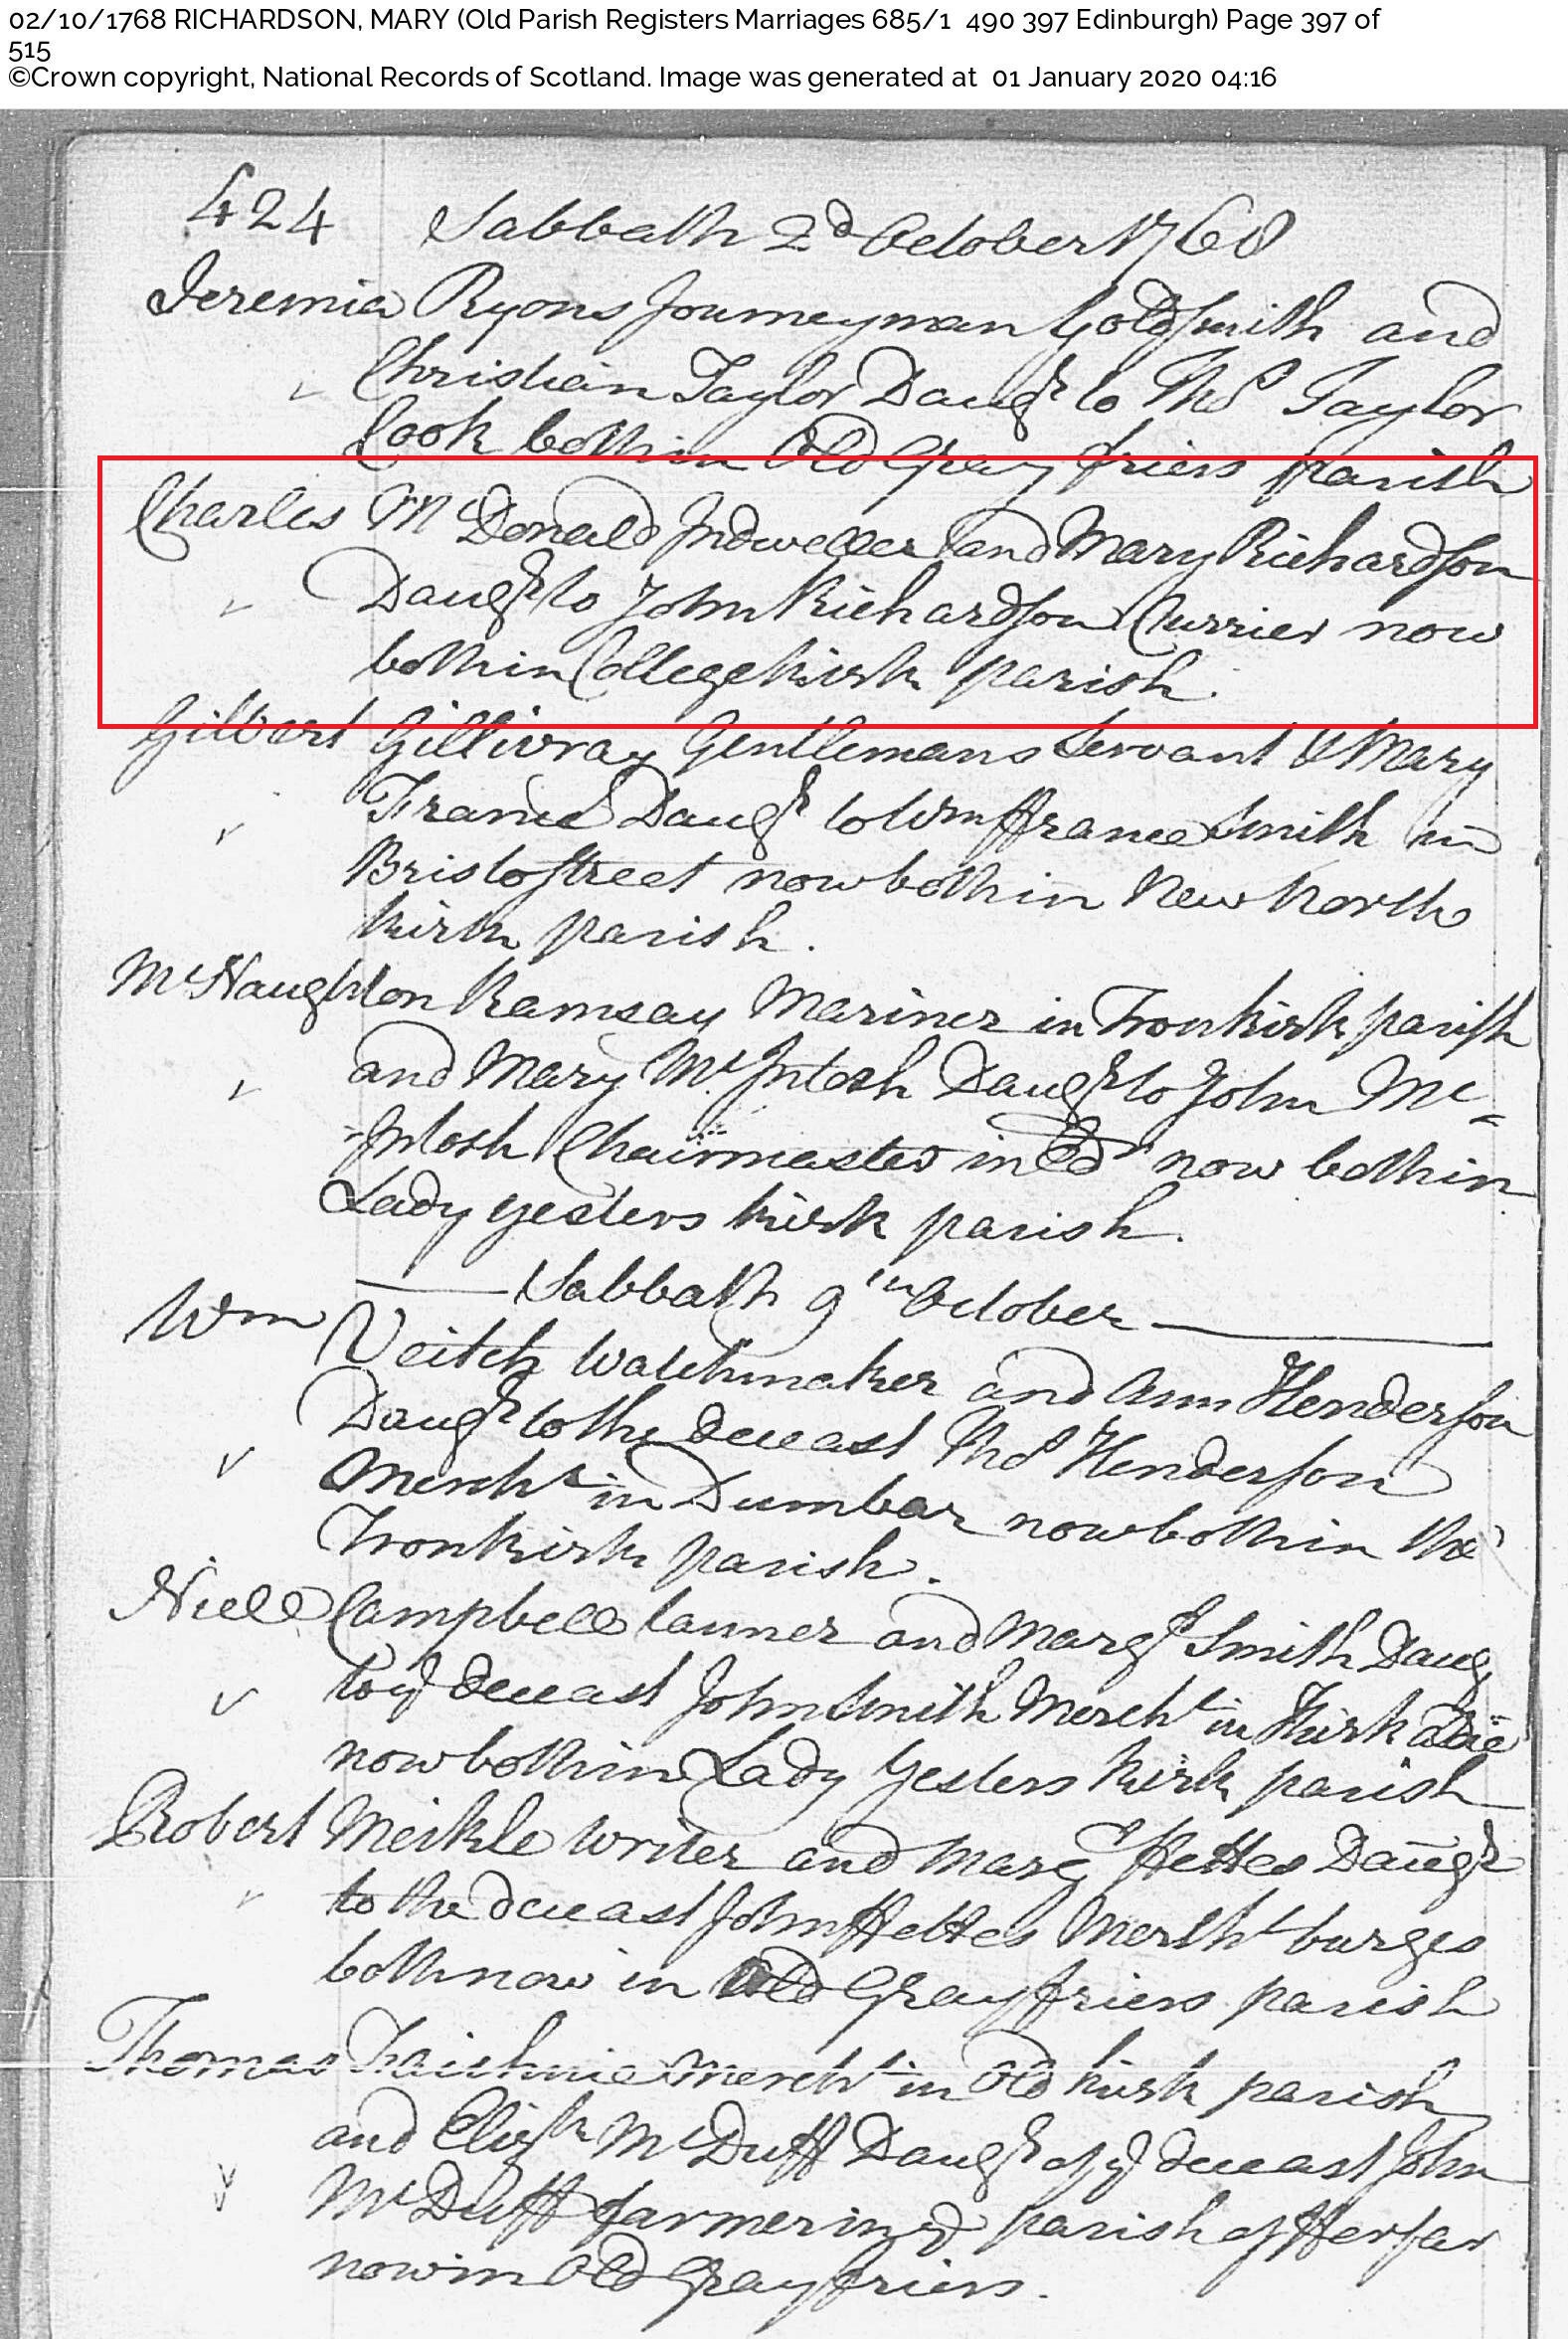 02/10/1768 RICHARDSON, MARY (Old Parish Registers Marriages 685/1 490 397 Edinburgh) Page 397 of
515
©Crown copyright, National Records of Scotland. Image was generated at 01 January 2020 04:16
424 Sabbath 2d October 1768
Jeremia Ryons Journeyman Goldsmith and
Christian Taylor Daugr to Thos Taylor
Cook both in Old Gray friers parish
Charles McDonald Indweller and Mary Richardson
Daugr to John Richardson Currier now
both in College kirk parish.
Gilbert Gillivray Gentlemans Servant & Mary
France Daugr to Wm ffrance Smith in
Bristo street now both in New North
kirk parish.
McNaughton Ramsay Mariner in Tron kirk parish
and Mary McIntosh Daugr to John Mc=
=Intosh Chairmaster in Edr now both in
Lady Yesters kirk parish.
Sabbath 9th October
Wm Veitch Watchmaker and Ann Henderson
Daugr to the deceast Thos Henderson
Mercht in Dumbar now both in the
Tron kirk parish.
Niell Campbell tanner and Margt Smith Daug
to ye deceast John Smith Mercht in Kirkaldie
now both in Lady Yesters kirk parish
Robert Meikle Writer and Margt ffettes Daugr
to the deceast John ffettes Mercht burges
both now in Old Grayfriers parish
Thomas Mercht in Old kirk parish
and Elizth McDuff Daugr of ye deceast John
McDuff farmer in ye parish of fforfar
now in Old Grayfriers.